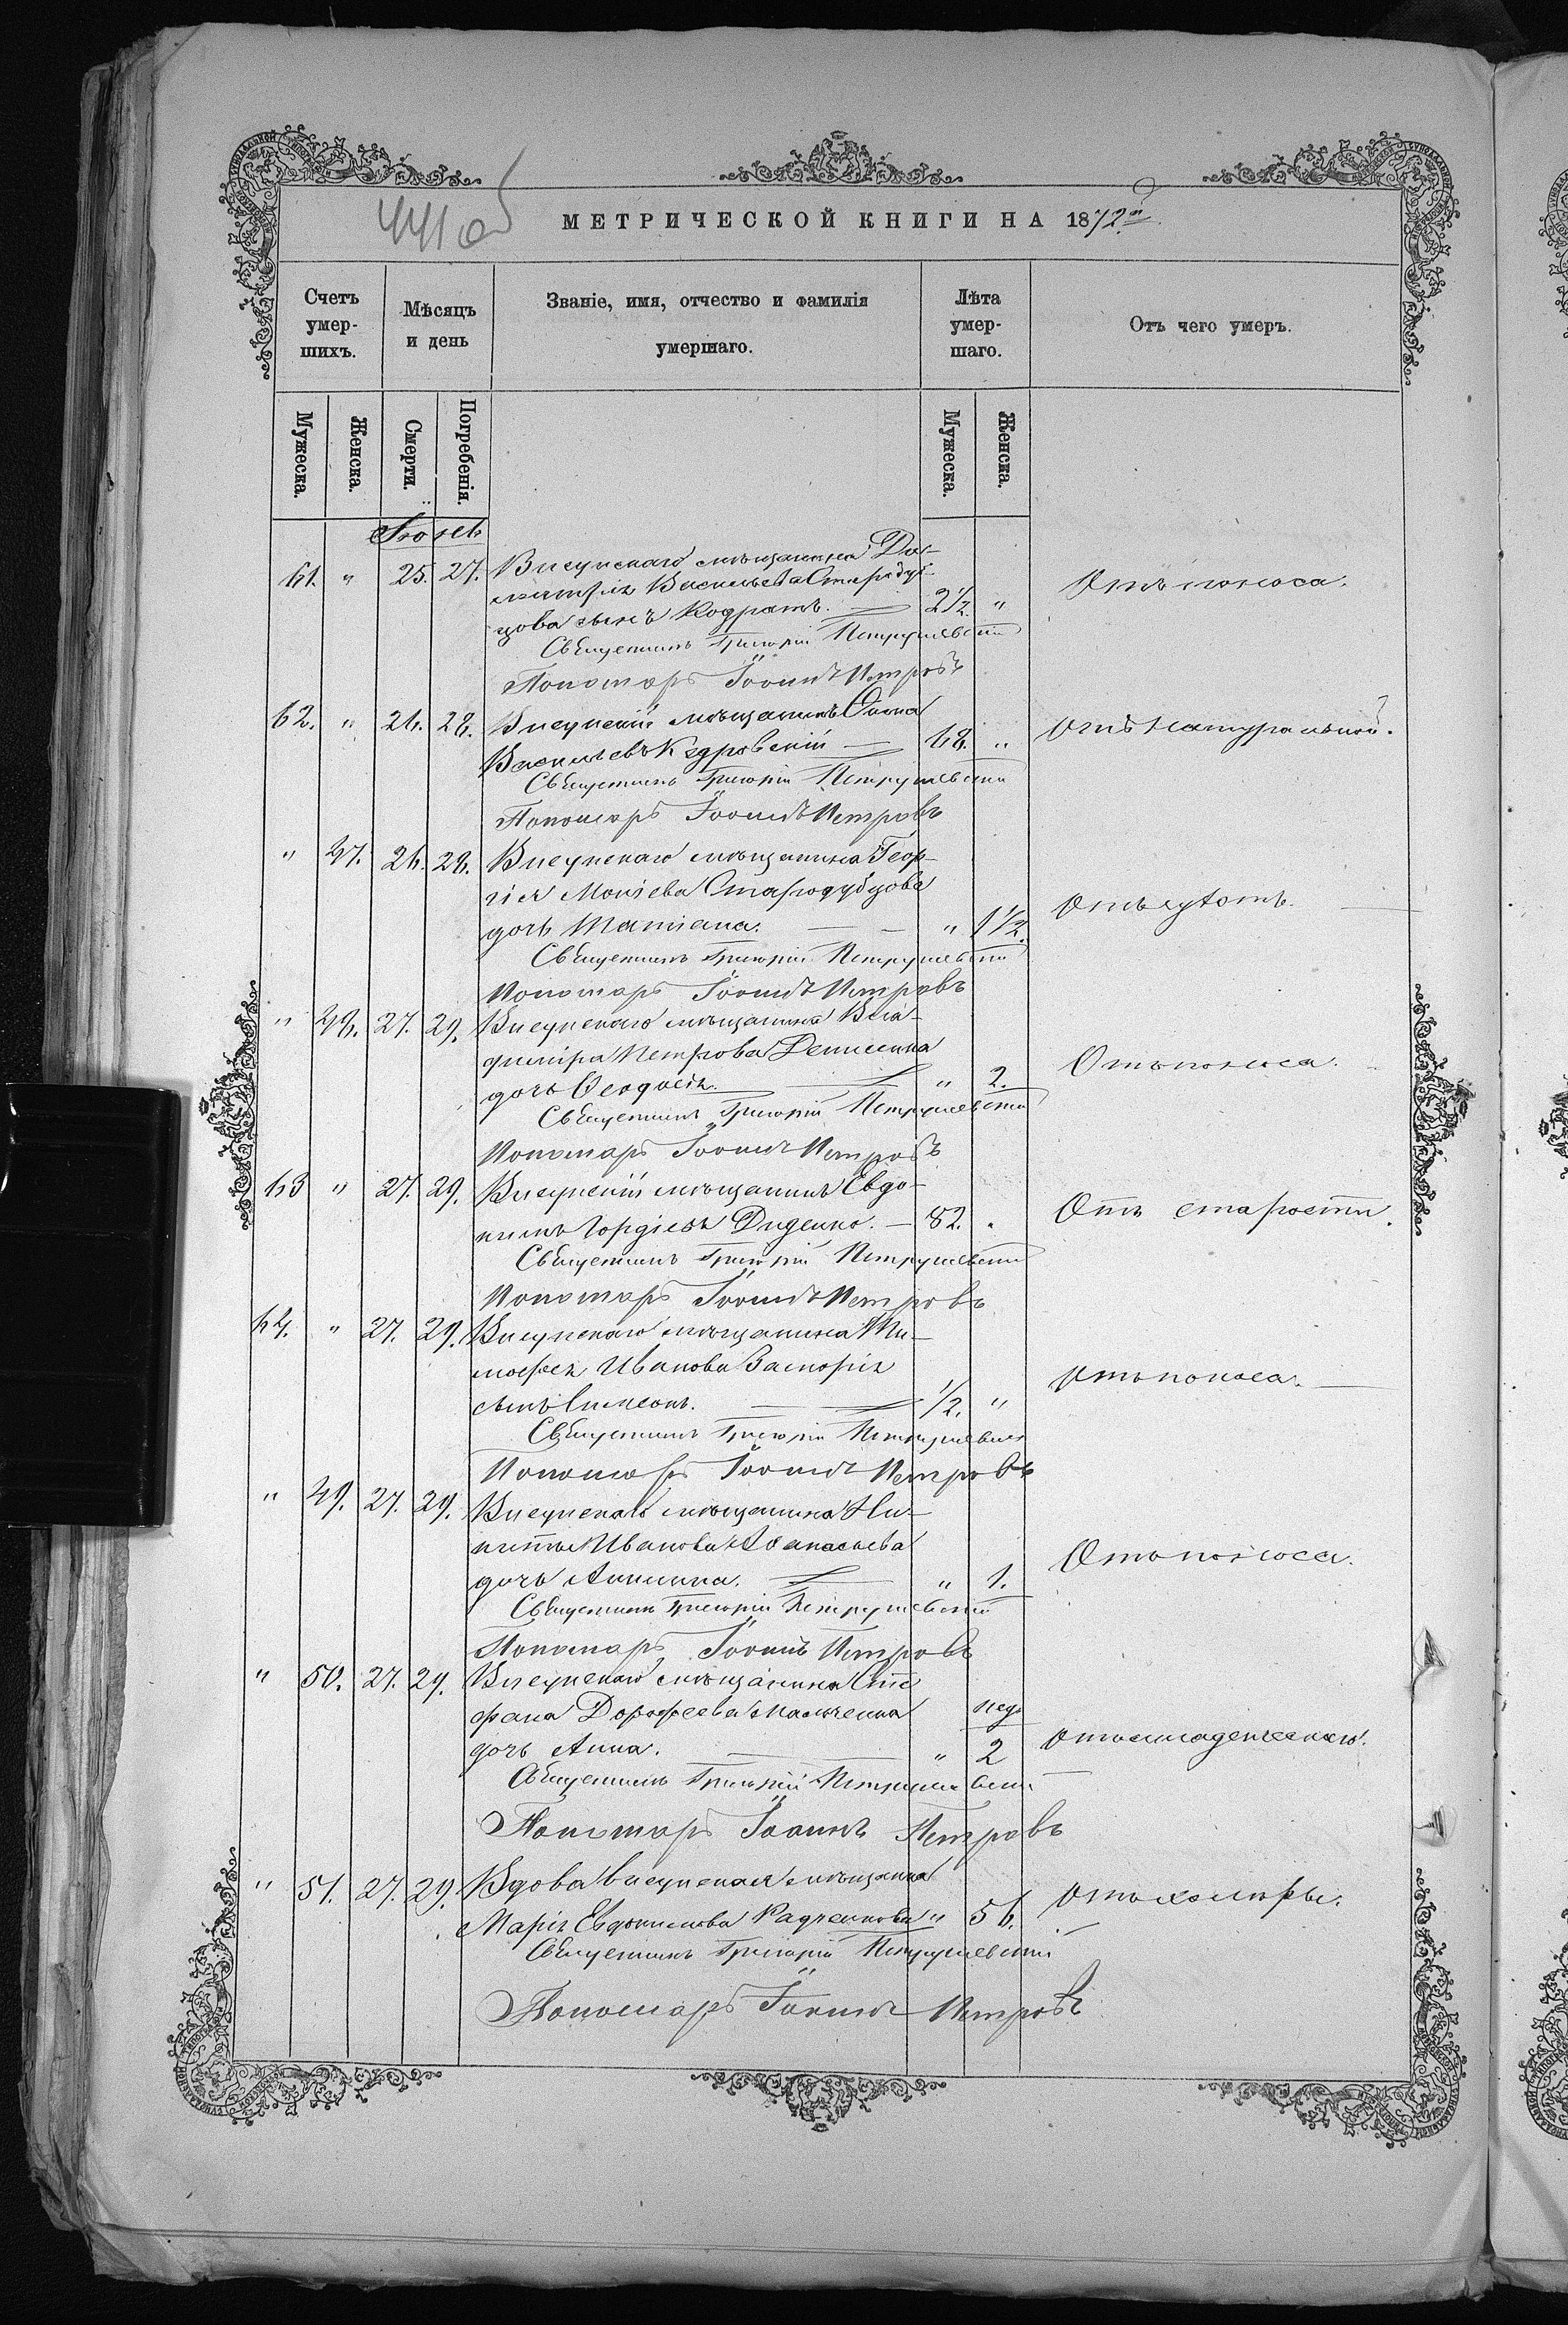 МЕТРИЧЕСКОЙ КНИГИ НА 1872й
Счетъ умер-шихъ.
Мѣсяцъ и день
Званіе, имя, отчество и фамилія умершаго.
Лѣта умер-шаго.
Отъ чего умеръ.
Мужеска. Женска. Смерти. Погребенія. Мужеска. Женска.
Іюль
61. " 25. 27. Висунскаго мѣщанина Ди-
митрія Васильева Стародуб-
цова сынъ Кодратъ. — 2½. " Отъ поноса.
Священникъ Григорій Петрушевскій
Пономарь Іоаннъ Петровъ
62. " 26. 28. Висунскій мѣщанинъ Ѳома
Васильевъ Кедровскій — 68. " Отъ натуральной.
Священникъ Григорій Петрушевскій
Пономарь Іоаннъ Петровъ
" 47. 26. 28. Висунскаго мѣщанина Геор-
гія Моисіева Стародубцова
дочь Татіана. — " 1½.
Священникъ Григорій Петрушевскій
Пономарь Іоаннъ Петровъ
" 48. 27. 29. Висунскаго мѣщанина Вла-
диміра Петрова Денисенка
дочь Ѳеодосія. — " 2. Отъ поноса.
Священникъ Григорій Петрушевскій
Пономарь Іоаннъ Петровъ
63 " 27. 29. Висунскій мѣщанинъ Евдо-
кимъ Гордіевъ Диденко. — 82. " Отъ старости.
Священникъ Григорій Петрушевскій
Пономарь Іоаннъ Петровъ
64. " 27. 29. Висунскаго мѣщанина Ти-
мофея Иванова
сынъ Симеонъ. — ½. " Отъ поноса.
Священникъ Григорій Петрушевскій
Пономарь Іоаннъ Петровъ
" 49. 27. 29. Висунскаго мѣщанина Ни-
киты Иванова Аѳанасьева
дочь Акилина. — " 1. Отъ поноса.
Священникъ Григорій Петрушевскій
Пономарь Іоаннъ Петровъ
" 50. 27. 29. Висунскаго мѣщанина Сте
фана Дорофеева
нед.
дочь Анна. — " 2 Отъ младенческаго.
Священникъ Григорій Петрушевскій
Пономарь Іоаннъ Петровъ
" 51. 27. 29. Вдова висунская мѣщанка
Марія Евдокимова Радченкова " 56. Отъ холеры.
Священникъ Григорій Петрушевскій
Пономарь Іоаннъ Петровъ